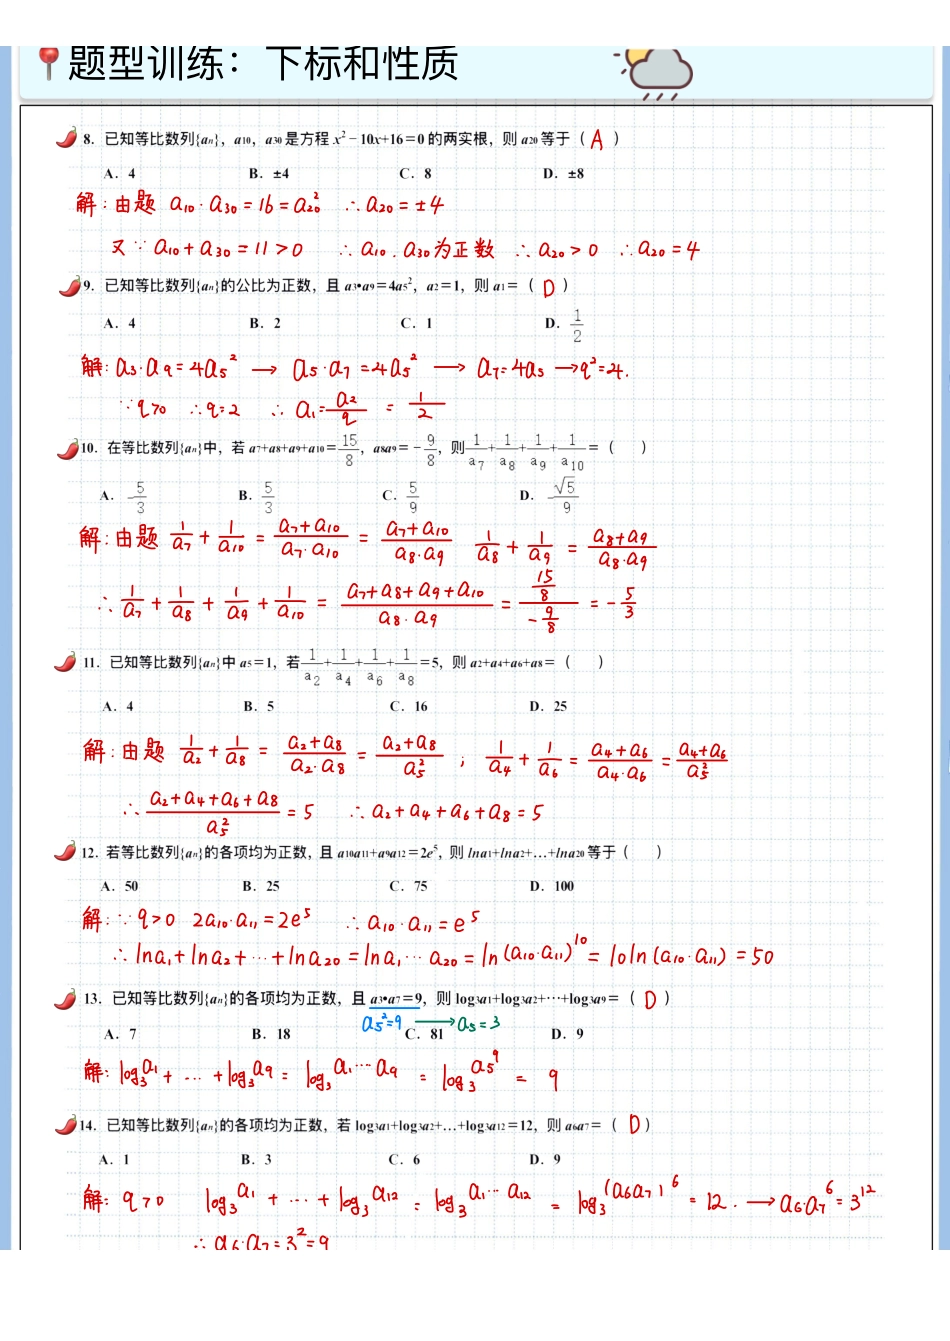 题型训练：下标和性质
8．已知等比数列{an}，a10，a30 是方程 x²－10x+16＝0 的两实根，则 a20 等于（ A ）
A．4 B．±4 C．8 D．±8
解：由题 a10·a30＝16＝a20² ∴a20＝±4
又∵a10＋a30＝11＞0 ∴a10．a30为正数 ∴a20＞0 ∴a20＝4
9．已知等比数列{an}的公比为正数，且 a3•a9＝4a5²，a2＝1，则 a1＝（ D ）
A．4 B．2 C．1 D．1/2
解：a3·a9＝4a5² → a5·a7＝4a5² → a7＝4a5 → q²＝4．
∵q>0 ∴q＝2 ∴a1＝a2/q ＝ 1/2
10．在等比数列{an}中，若 a7+a8+a9+a10＝15/8，a8a9＝－9/8，则1/a7+1/a8+1/a9+1/a10＝（ ）
A．-5/3 B．5/3 C．5/9 D．-√5/9
解：由题 1/a7＋1/a10＝(a7＋a10)/(a7·a10)＝(a7＋a10)/(a8·a9) 1/a8＋1/a9＝(a8＋a9)/(a8·a9)
∴1/a7＋1/a8＋1/a9＋1/a10＝(a7＋a8＋a9＋a10)/(a8·a9)＝(15/8)/(-9/8)＝-5/3
11．已知等比数列{an}中 a5＝1，若1/a2+1/a4+1/a6+1/a8＝5，则 a2+a4+a6+a8＝（ ）
A．4 B．5 C．16 D．25
解：由题 1/a2＋1/a8＝(a2＋a8)/(a2·a8)＝(a2＋a8)/a5²；1/a4＋1/a6＝(a4＋a6)/(a4·a6)＝(a4＋a6)/a5²
∴(a2＋a4＋a6＋a8)/a5²＝5 ∴a2＋a4＋a6＋a8＝5
12．若等比数列{an}的各项均为正数，且 a10a11+a9a12＝2e⁵，则 lna1+lna2+…+lna20 等于（ ）
A．50 B．25 C．75 D．100
解：∵q＞0 2a10·a11＝2e⁵ ∴a10·a11＝e⁵
∴lna1＋lna2＋…＋lna20＝lna1…a20＝ln(a10·a11)¹⁰＝10ln(a10·a11)＝50
13．已知等比数列{an}的各项均为正数，且 a3•a7＝9，则 log3a1+log3a2+…+log3a9＝（ D ）
a5²＝9 → a5＝3
A．7 B．18 C．81 D．9
解：log3a1＋…＋log3a9＝log3a1…a9＝log3a5⁹＝9
14．已知等比数列{an}的各项均为正数，若 log3a1+log3a2+…+log3a12＝12，则 a6a7＝（ D ）
A．1 B．3 C．6 D．9
解：q>0 log3a1＋…＋log3a12＝log3a1…a12＝log3(a6a7)⁶＝12．→a6·a7⁶＝3¹²
∴a6·a7＝3²＝9